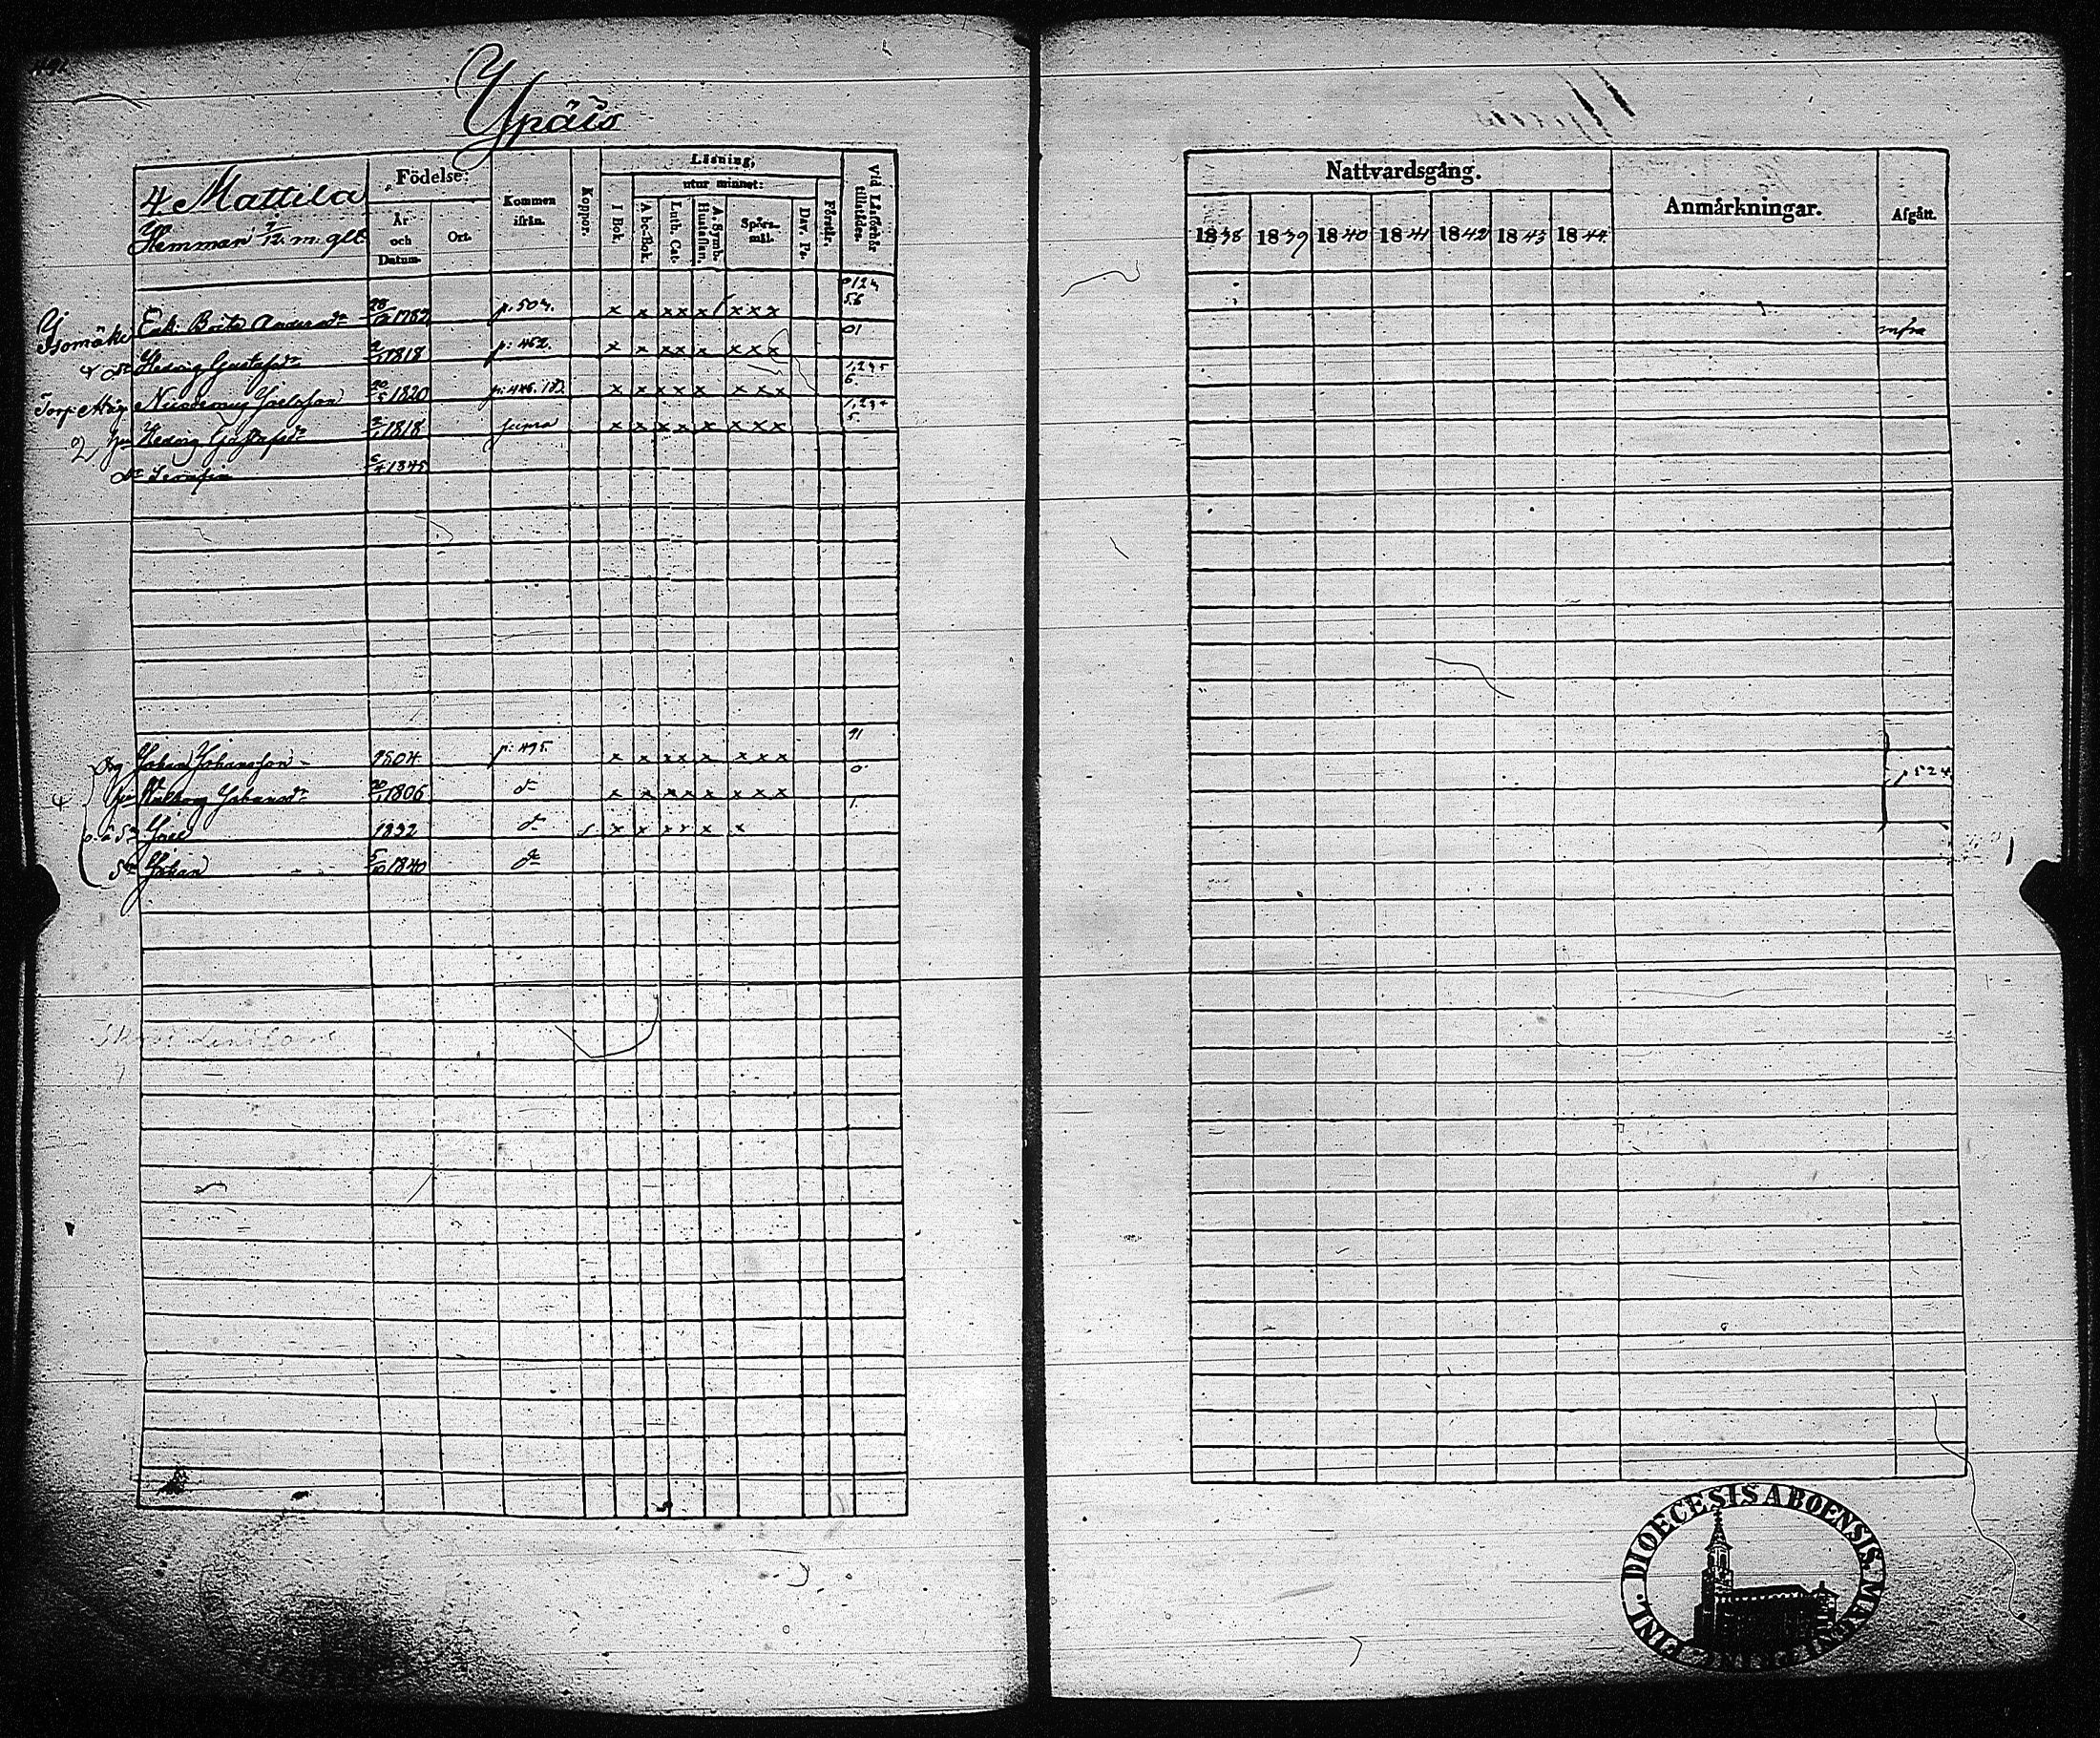 Ypäis
4. Mattila
Hemman 7/12 m. glt
Födelse:
År och Datum.
Ort.
Kommen ifrån.
Koppor.
Läsning,
utur minnet:
I Bok.
Abc-Bok.
Luth. Cat.
A. Symb. Hustaflan.
Spörs-mål.
Dav. Ps.
Förstår.
Vid Läsförhör tillstädes.
Enk. Brita Andersdr 28/12 1782 p. 504. x x x x x x x x 0124 56
dr Hedvig Gustafsdr 2/1 1818 p: 462. x x x x x x x x 01
Torp. Måg Johansson 20/5 1820 p: 446. x x x x x x x x 1,245 6.
2 hu Hedvig Gustafsdr 2/1 1818 supra x x x x x x x x 1,234 5
dr Serafia 6/4 1845
Johan Johansson 1804 p: 495. x x x x x x x x 91
4 hu Walborg Johansdr 20/1 1806 do x x x x x x x x 0
1832 do s x x x x x x 1.
Son Johan 5/10 1840 do
Nattvardsgång.
1838 1839 1840 1841 1842 1843 1844
Anmärkningar.
Afgått.
infra
p 524
DIOECESIS ABOENSIS MAGNI PRINC. FINL.